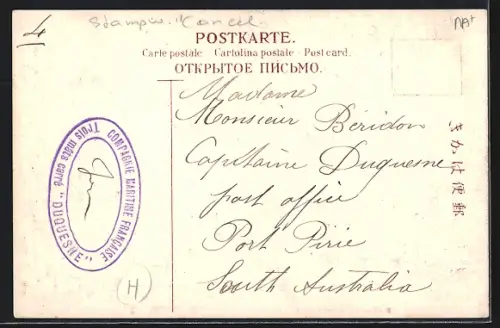 Stampless "Cancel
4
POSTKARTE.
Carte postale - Cartolina postale - Post card.
ОТКРЫТОЕ ПИСЬМО.
Madame
Monsieur Béridon
Capitaine Duquesne
post office
Port Pirie
South Australia
きかは便郵
COMPAGNIE MARITIME FRANÇAISE
Trois mats carré "DUQUESNE"
(H)